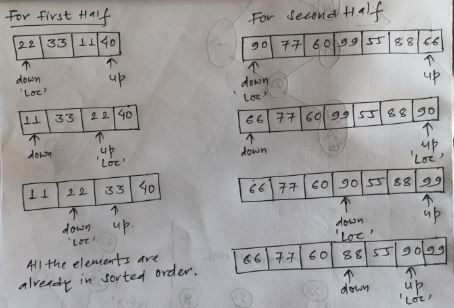 For First Half
22 33 11 40
down
'Loc'
up
11 33 22 40
down
up
'Loc'
11 22 33 40
down
'Loc'
up
All the elements are
already in sorted order.
For Second Half
90 77 60 99 55 88 66
down
'Loc'
up
66 77 60 99 55 88 90
down
up
'Loc'
66 77 60 90 55 88 99
down
'Loc'
up
66 77 60 88 55 90 99
down
up
'Loc'